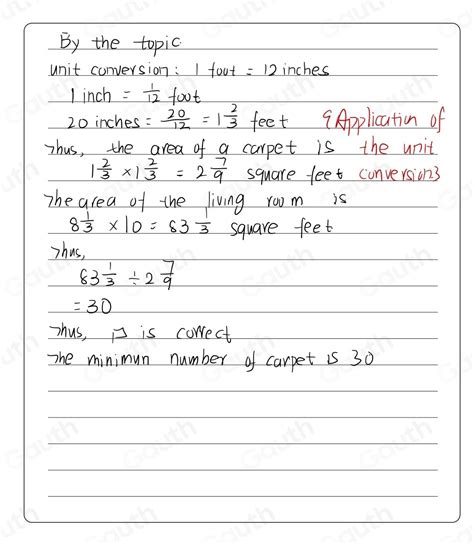 By the topic
unit conversion: 1 foot = 12 inches
1 inch = 1/12 foot
20 inches = 20/12 = 1 2/3 feet {Application of
Thus, the area of a carpet is the unit
1 2/3 × 1 2/3 = 2 7/9 square feet conversion}
The area of the living room is
8 1/3 × 10 = 83 1/3 square feet
Thus,
83 1/3 ÷ 2 7/9
= 30
Thus, D is correct
The minimun number of carpet is 30
Gauth